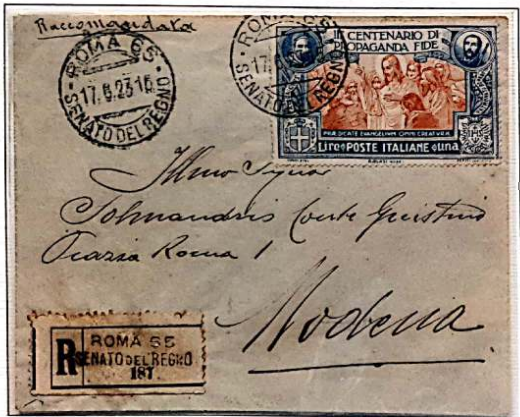 Raccomandata
ROMA 65
17.6.23.16
SENATO DEL REGNO
ROMA 65
17.
SENATO DEL REGNO
III CENTENARIO DI
PROPAGANDA FIDE
PRÆDICATE EVANGELIUM OMNI CREATURÆ
Lire POSTE ITALIANE una
Illmo Signor
Conte
Roma 1
Modena
R
ROMA 65
SENATO DEL REGNO
187